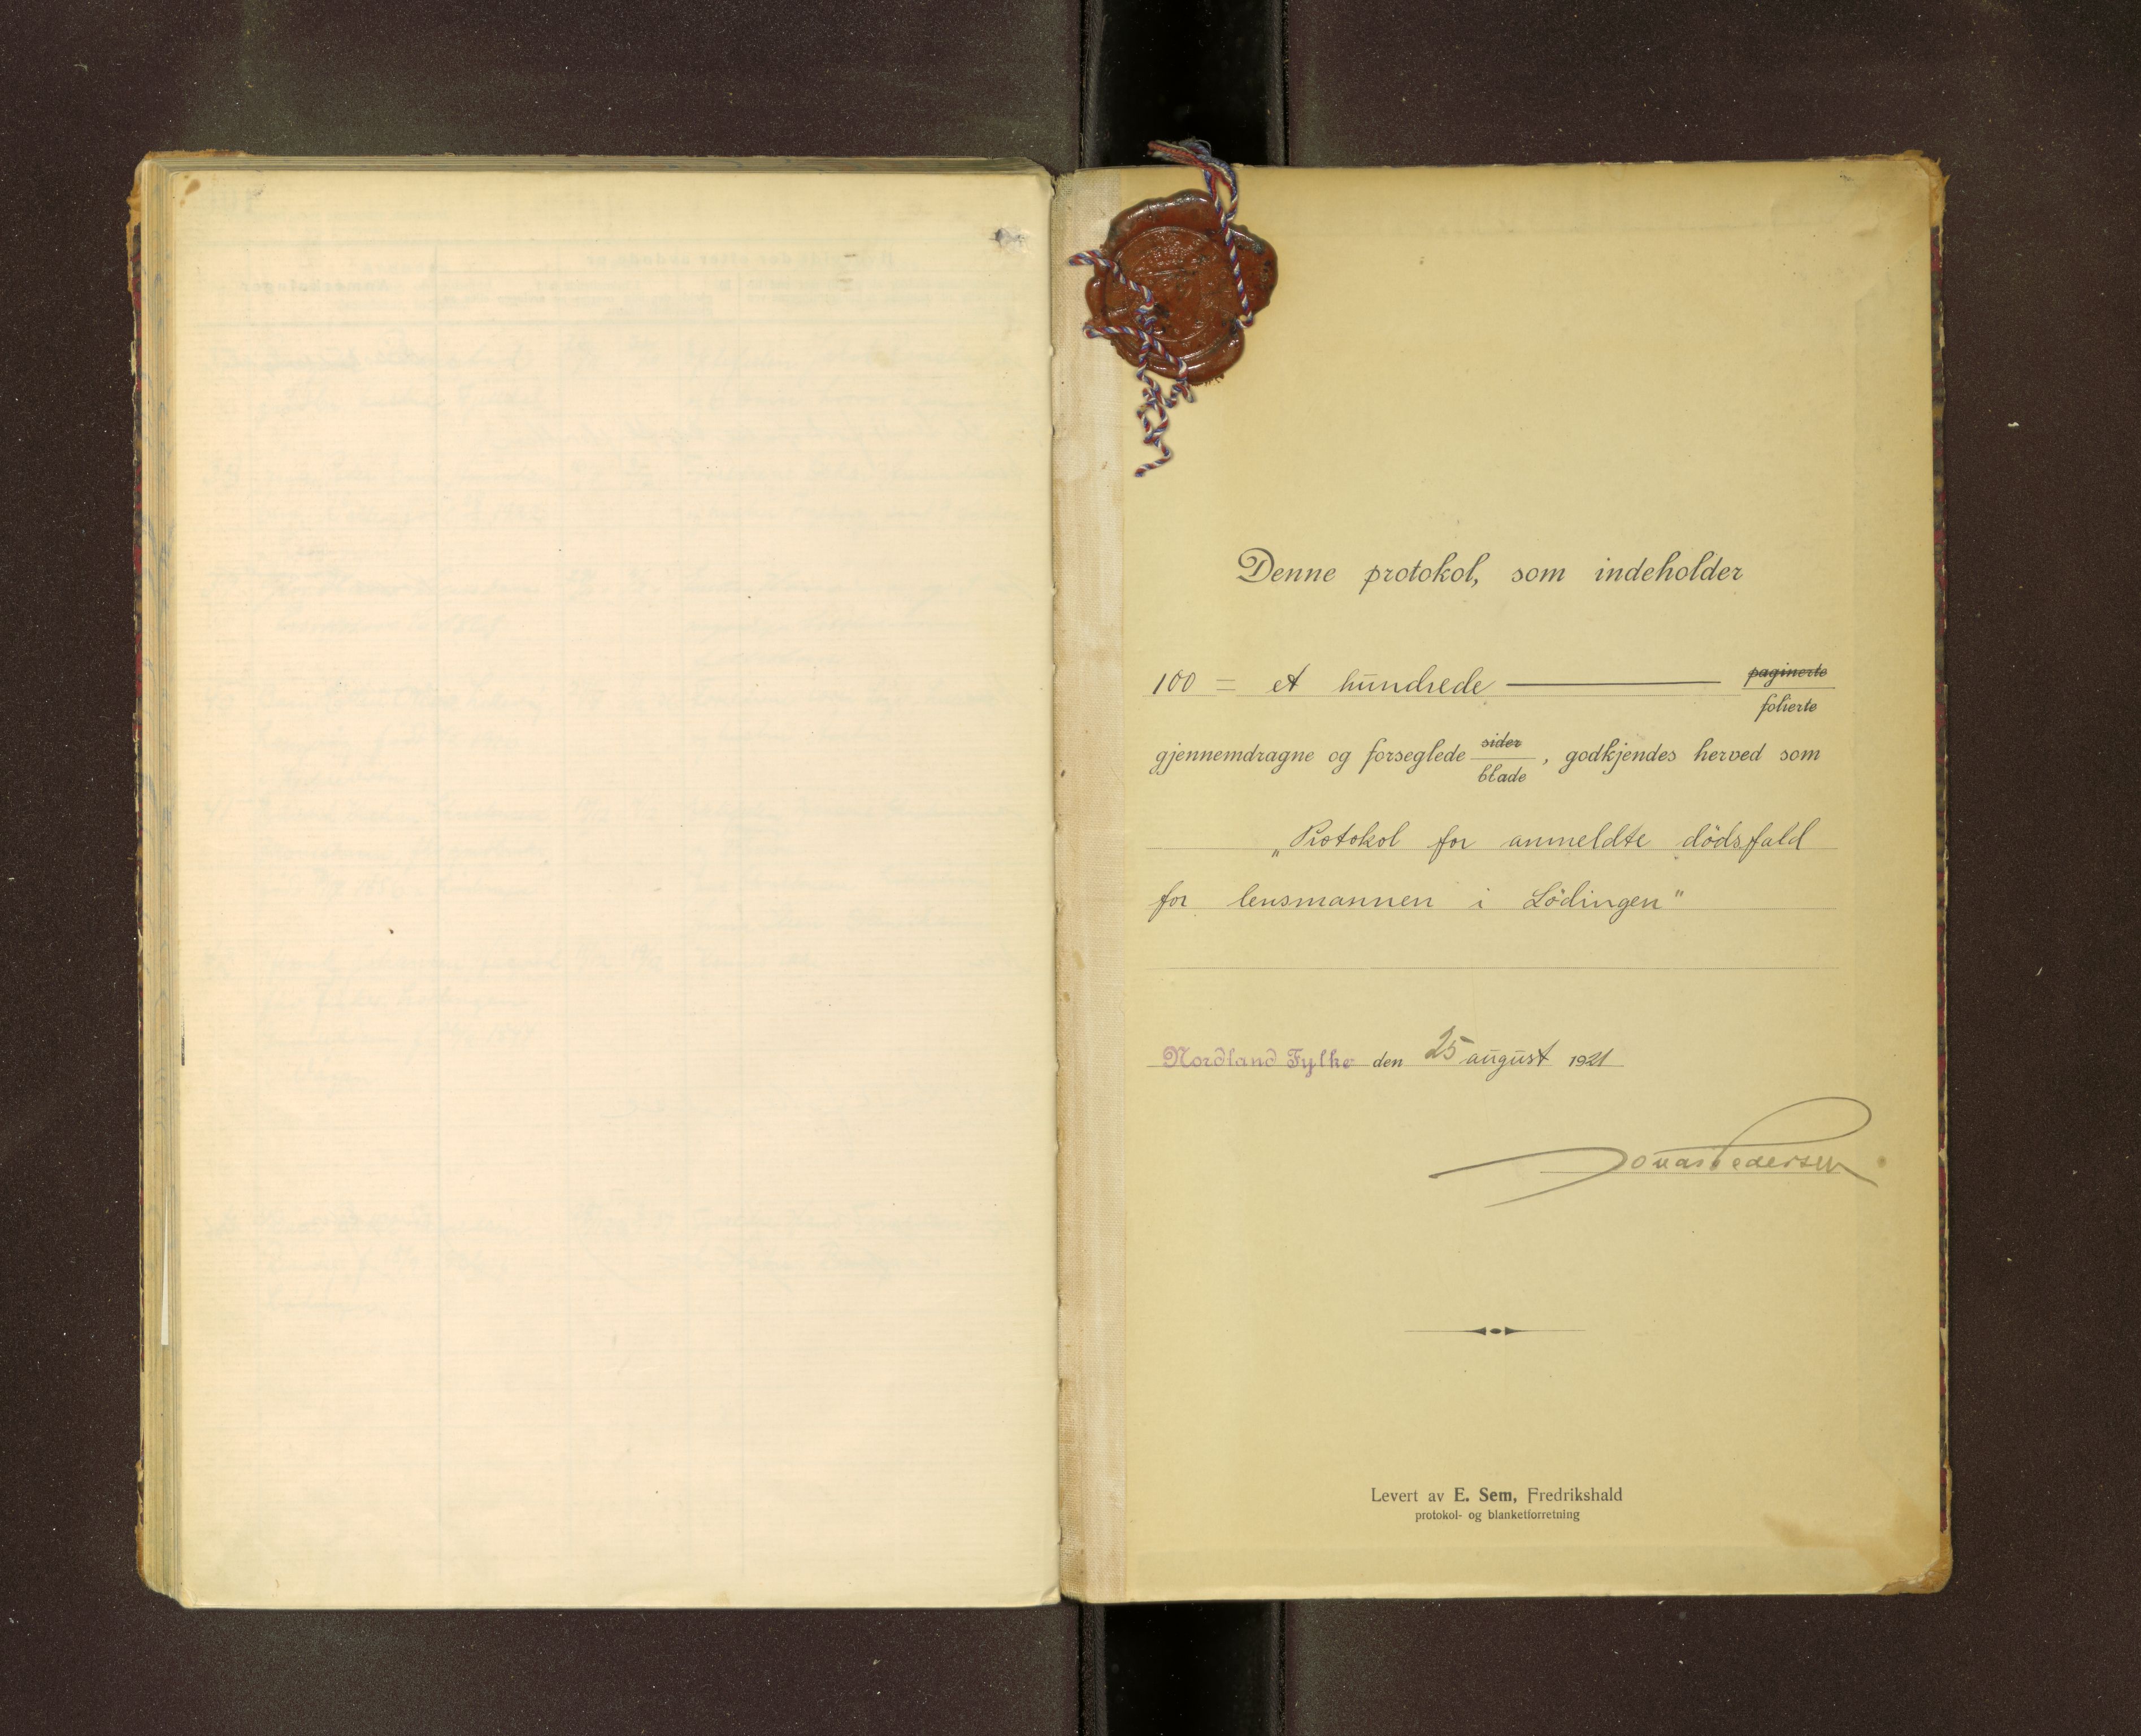 Denne protokol, som indeholder
100 = et hundrede paginerte
folierte
gjennemdragne og forseglede sider
blade, godkjendes herved som
„Protokol for anmeldte dödsfald
for lensmannen i Lödingen"
Nordland Fylke den 25 august 1921
Jonas Pedersen
Levert av E. Sem, Fredrikshald
protokol- og blanketforretning